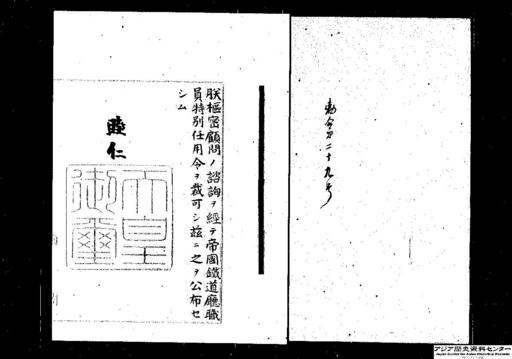 勅令第二十九号
朕樞密顧問ノ諮詢ヲ經テ帝國鐵道廳職
員特別任用令ヲ裁可シ茲ニ之ヲ公布セ
シム
睦仁
天皇
御璽
アジア歴史資料センター
Japan Center for Asian Historical Records